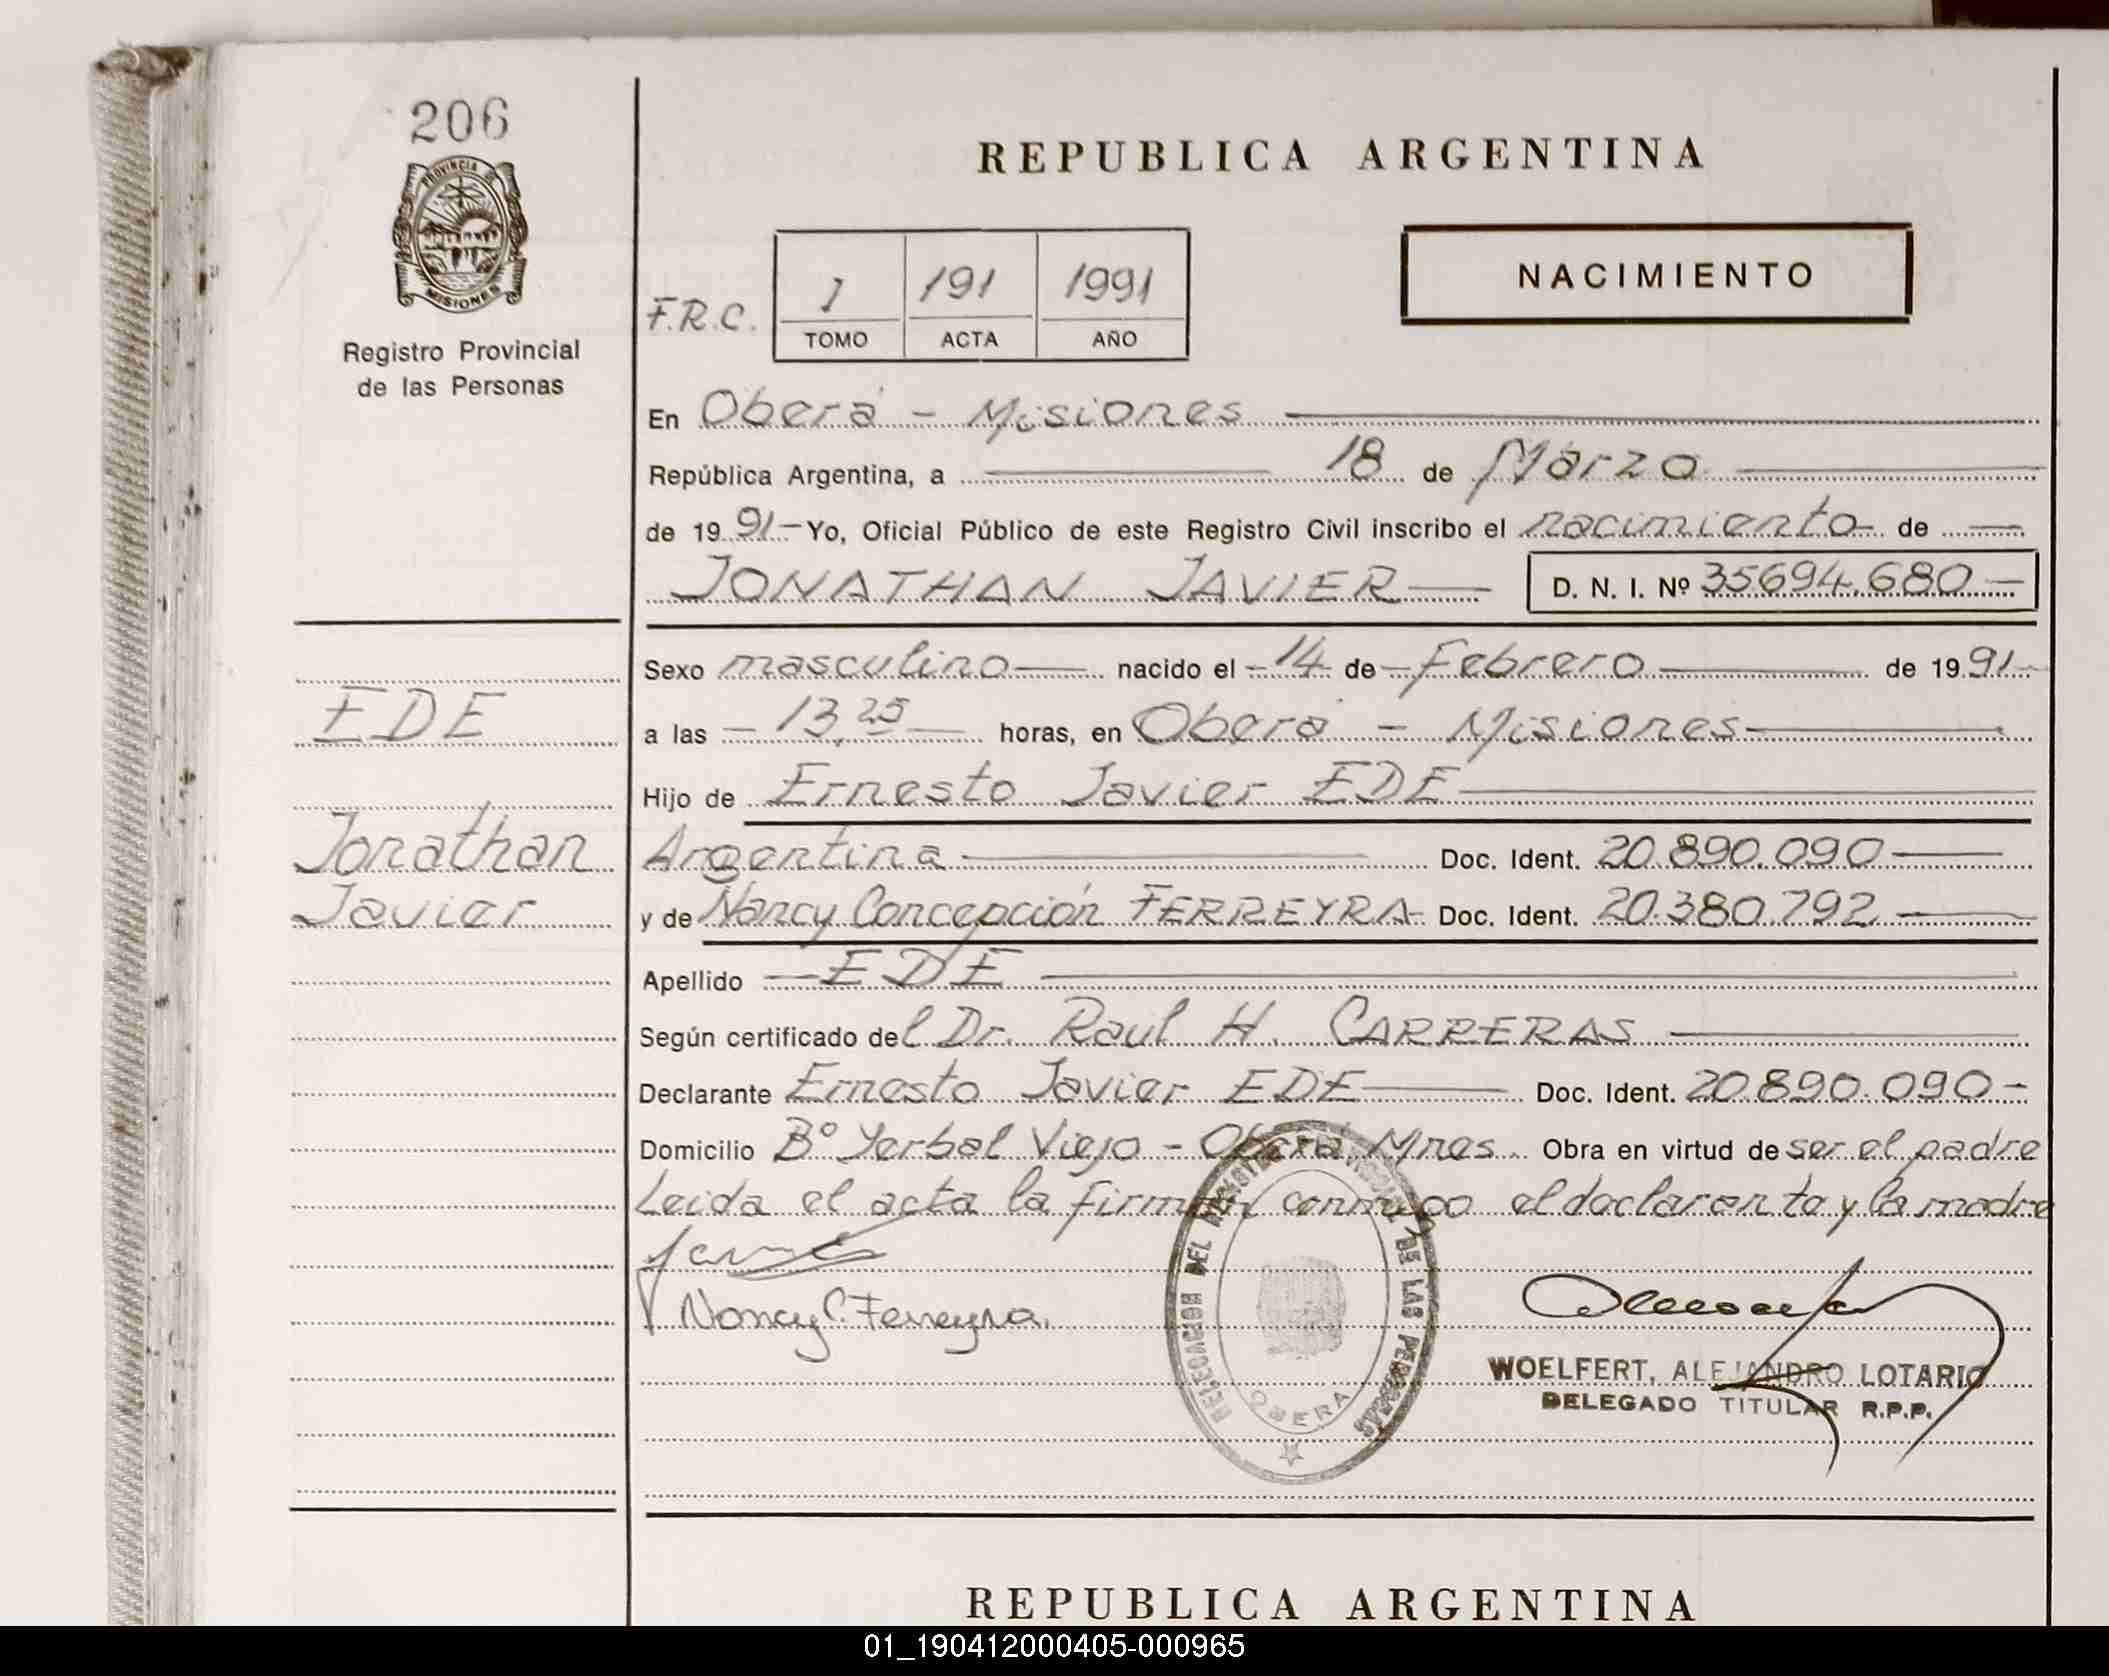 206
PROVINCIA DE
MISIONES
Registro Provincial
de las Personas
REPUBLICA ARGENTINA
NACIMIENTO
F.R.C.
1 191 1991
TOMO ACTA AÑO
En Oberá - Misiones
República Argentina, a 18 de Marzo
de 1991- Yo, Oficial Público de este Registro Civil inscribo el nacimiento de
JONATHAN JAVIER D. N. I. Nº 35694.680-
Sexo masculino nacido el -14 de -Febrero de 1991-
a las - 13,25 horas, en Oberá - Misiones
Hijo de Ernesto Javier EDE
Argentina Doc. Ident. 20.890.090
y de Nancy Concepción FERREYRA- Doc. Ident. 20.380.792
Apellido - EDE
Según certificado del Dr. Raul H. CARRERAS
Declarante Ernesto Javier EDE Doc. Ident. 20.890.090-
Domicilio Bº Yerbal Viejo - Oberá, Mnes. Obra en virtud de ser el padre
Leida el acta la firman conmigo el declarante y la madre
Nancy C. Ferreyra.
EDE
Jonathan
Javier
DELEGACION DEL REGISTRO PROVINCIAL DE LAS PERSONAS
OBERA
WOELFERT, ALEJANDRO LOTARIO
DELEGADO TITULAR R.P.P.
REPUBLICA ARGENTINA
01_190412000405-000965